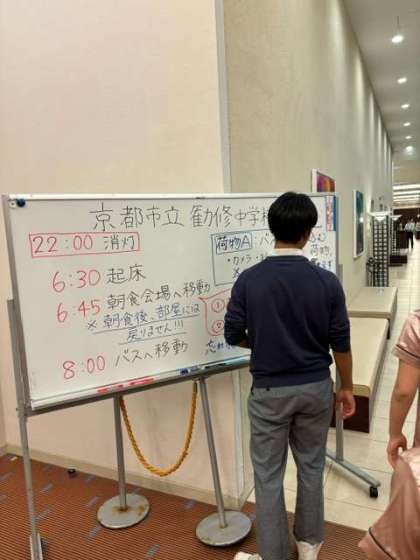 京都市立 勧修中学校
22:00 消灯
6:30 起床
6:45 朝食会場へ移動
※朝食後、部屋には
戻りません!!!
8:00 バスへ移動
荷物A:バ
・カメラ・
※
む
荷物
ます
①
②